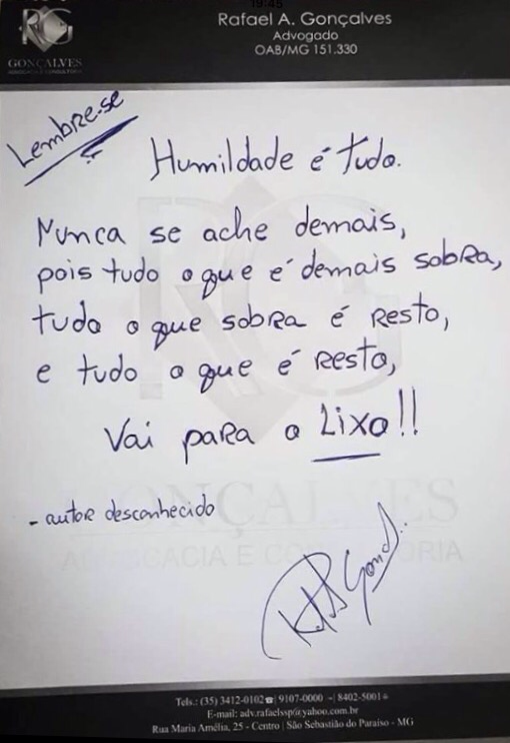 19:45
RG
GONÇALVES
ADVOCACIA E CONSULTORIA
Rafael A. Gonçalves
Advogado
OAB/MG 151.330
Lembre-se
Humildade é tudo.
Nunca se ache demais,
pois tudo o que é demais sobra,
tudo o que sobra é resto,
e tudo o que é resto,
Vai para o Lixo!!
- autor desconhecido
GONÇALVES
ADVOCACIA E CONSULTORIA
Tels.: (35) 3412-0102 | 9107-0000 - 8402-5001
E-mail: adv.rafaelssp@yahoo.com.br
Rua Maria Amélia, 25 - Centro | São Sebastião do Paraíso - MG